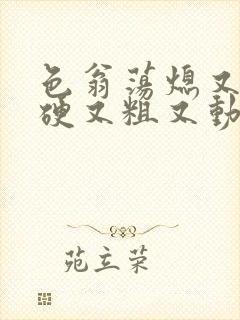 色翁荡熄又
硬又粗又動
苑立荣